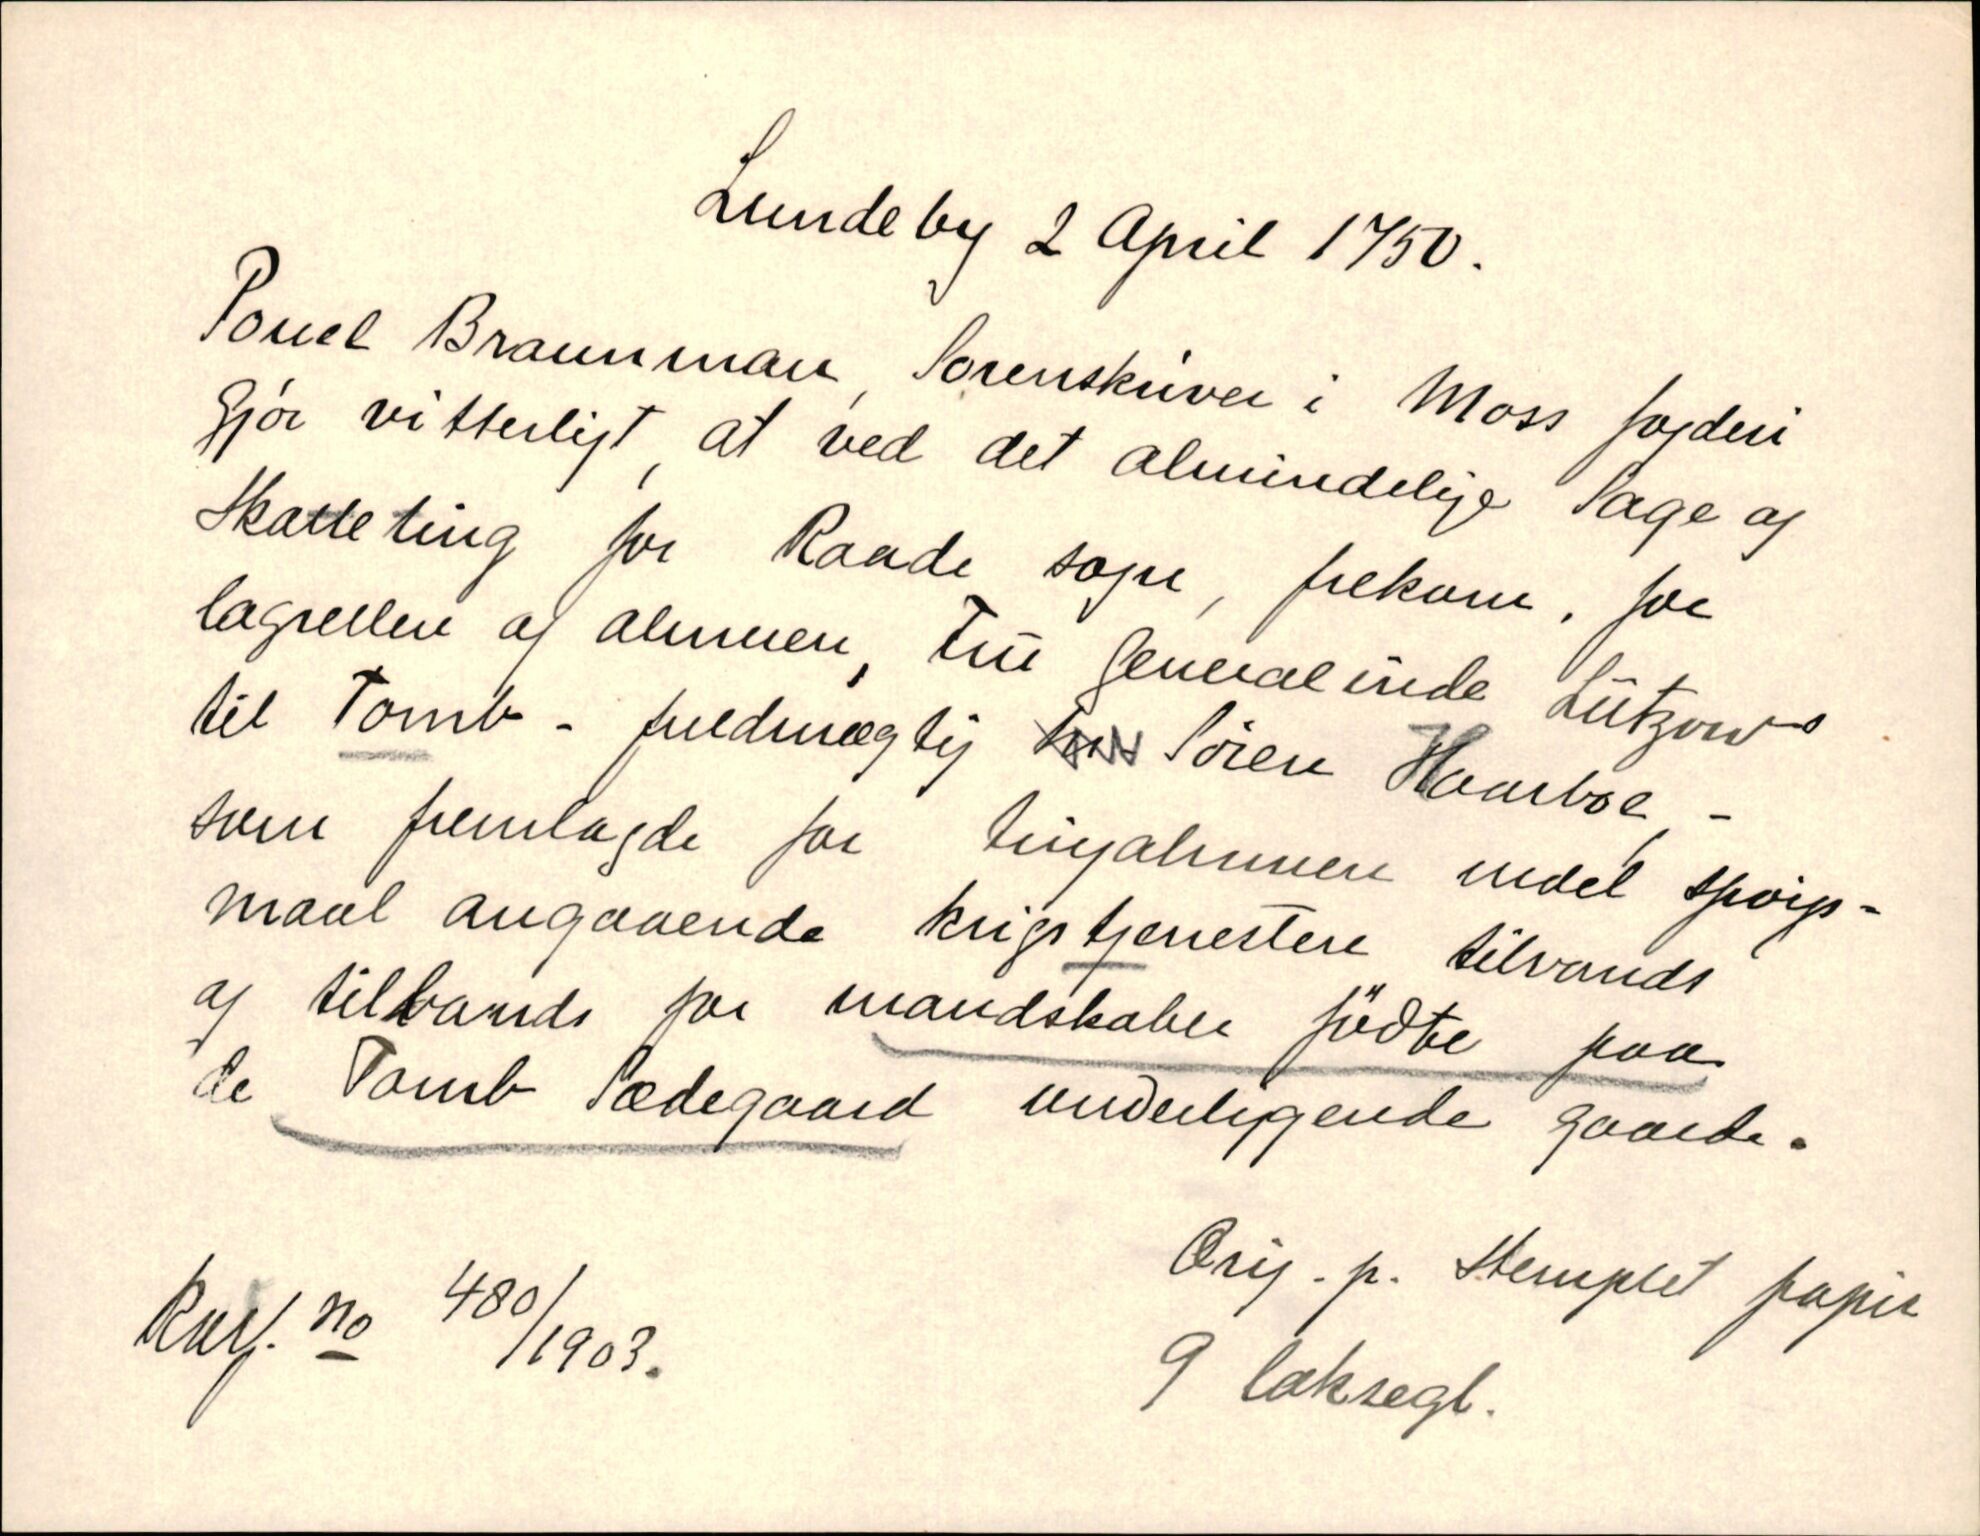 Lundeby 2 April 1750.
Pouel Braunman, Sorenskriver i Moss fogderi
gjör vitterligt, at ved det almindelige Sage og
Skatteting for Raade sogn, frekom, for
lagretten og almuen, Fru Generalinde Lützows
til Tomb - fuldmægtig Sören Haarboe, -
som fremlagde for tingalmuen endel spörgs-
maal angaaende krigstjenesten tilvands
og tillands for mandskaber födte paa
de Tomb Sædegaard underliggende gaarde.
Orig. p. Stemplet papir
9 laksegl.
no 480/1903.